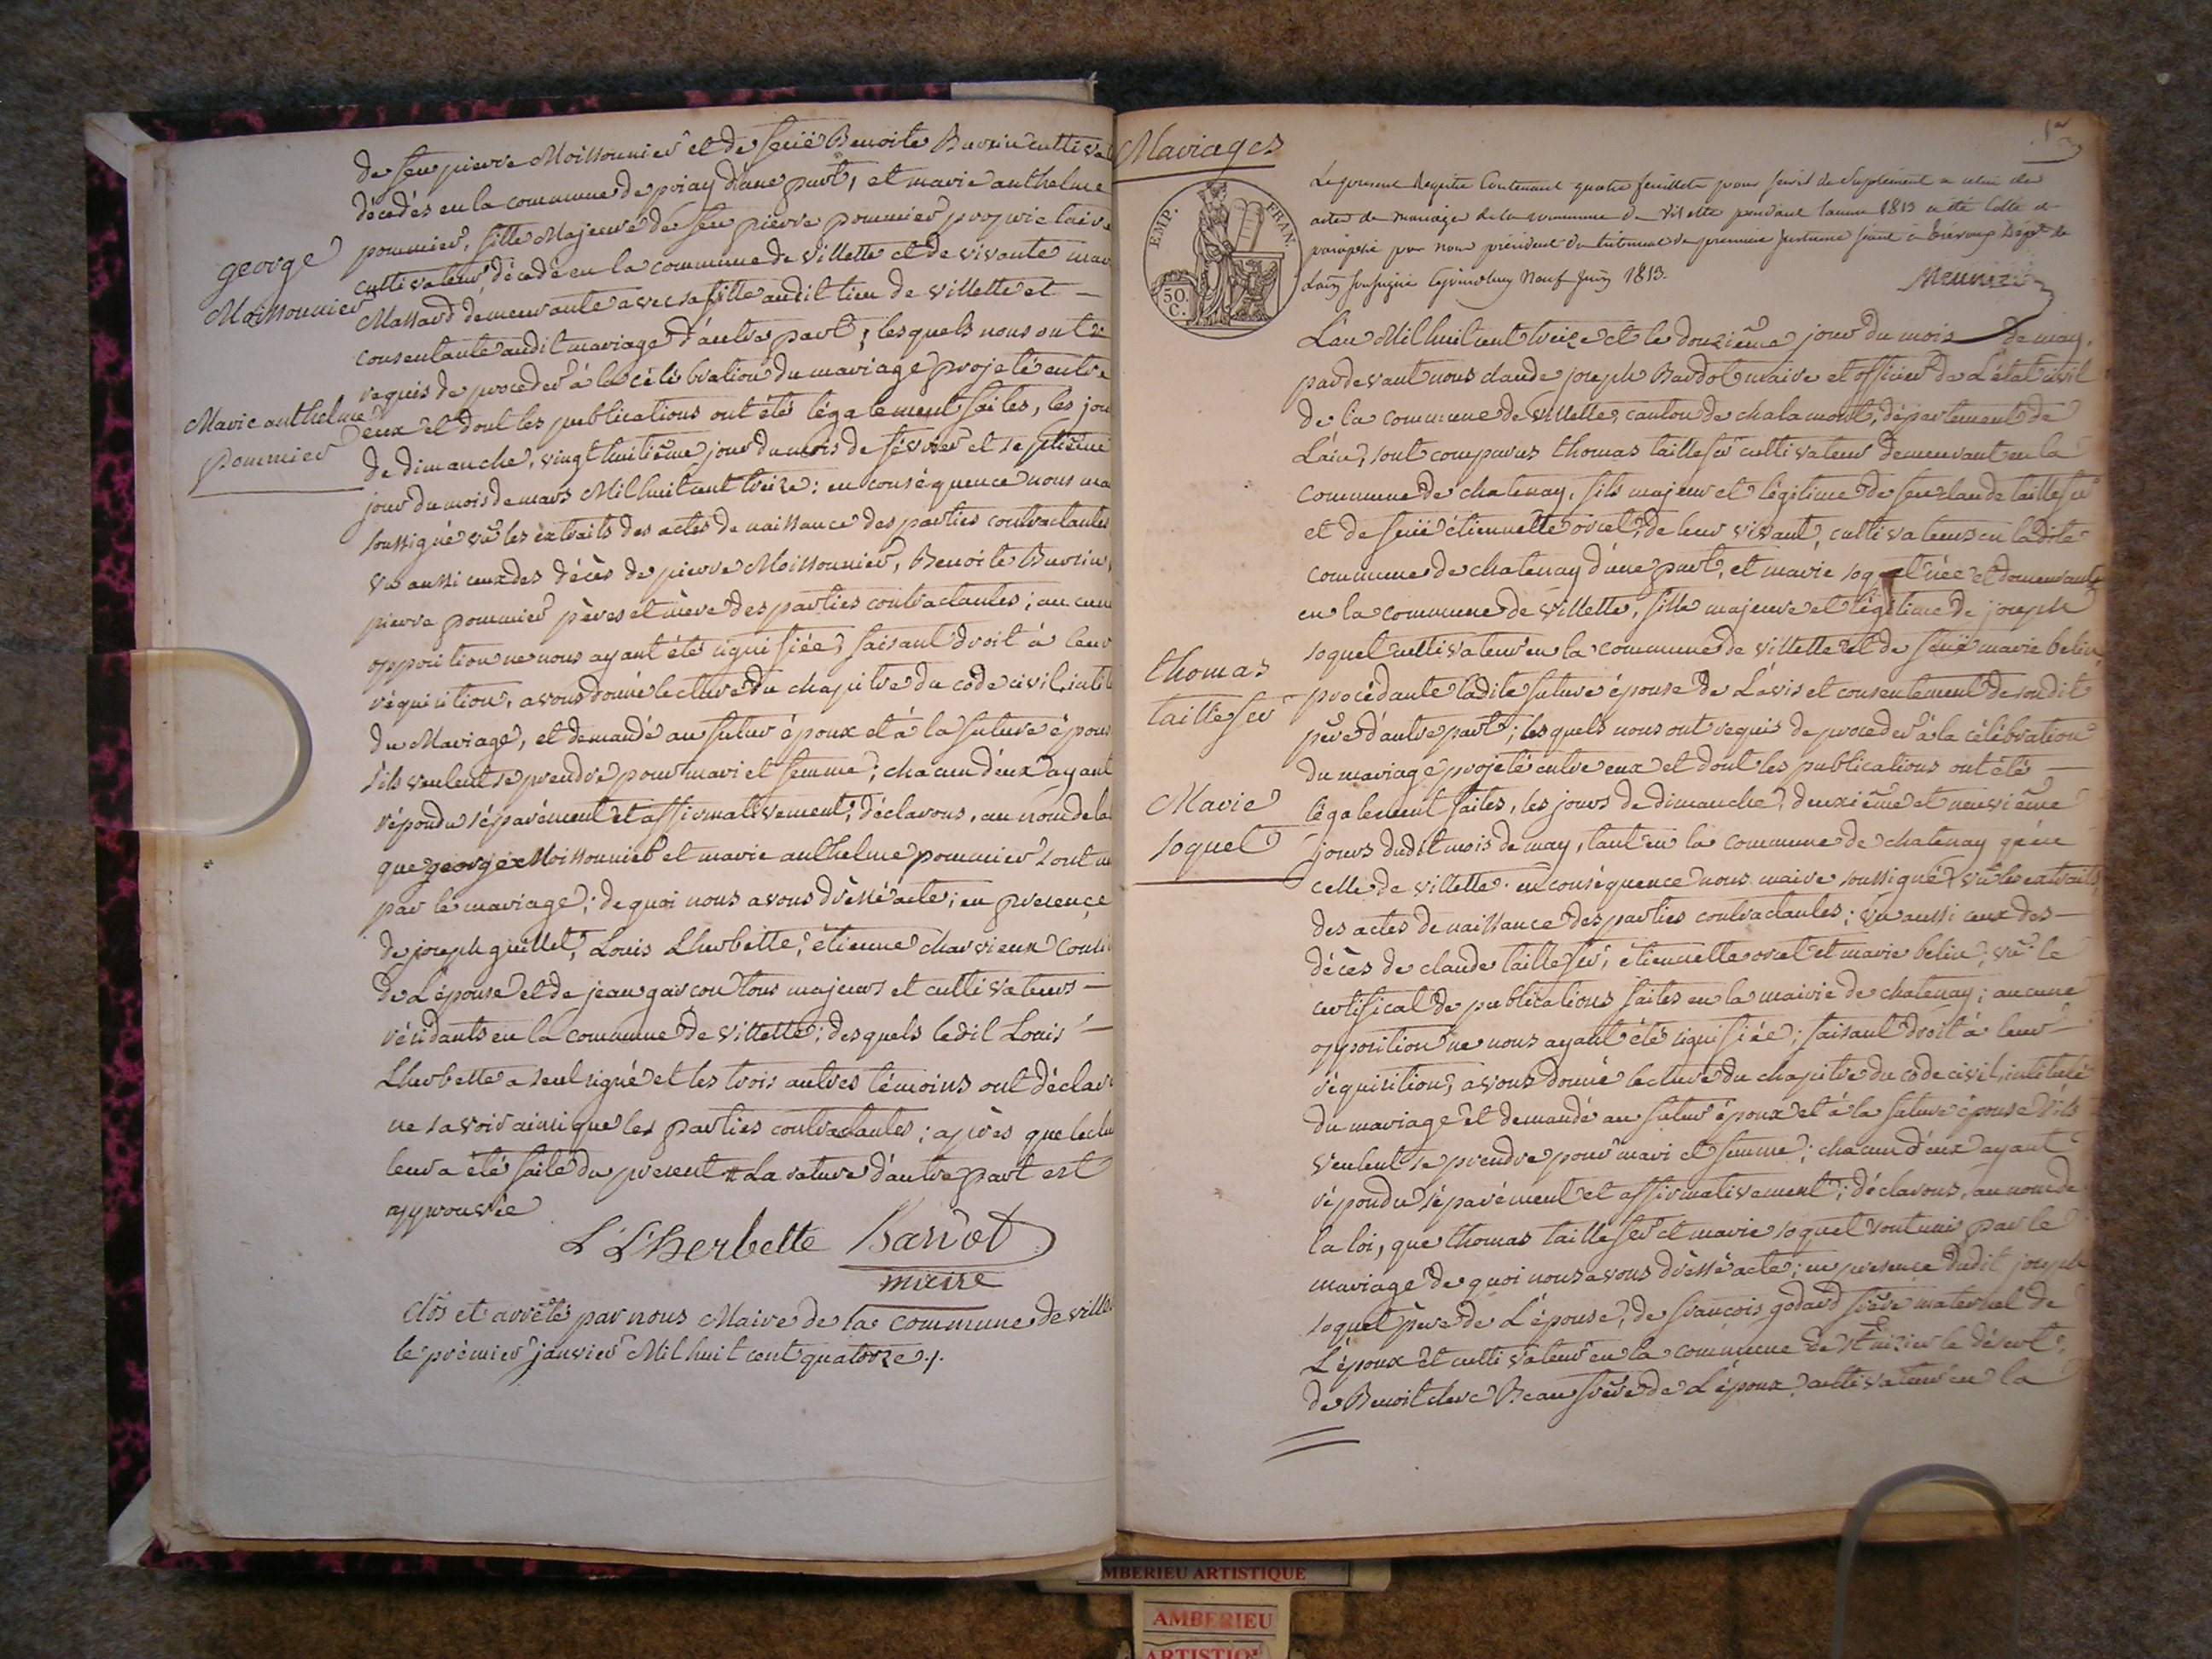 de feu pierre Moissonnier et de feüe Benoite Buvrin cultiva
décédés en la commune de priay d'une part, et marie anthelme
pommier, fille Majeure de feu pierre pommier propriétaire
cultivateur, décédé en la commune de villette et de vivante mar
george
Moissonnier
Massard demeurante avec sa fille audit lieu de villette et —
consentante audit mariage d'autre part; lesquels nous ont
requis de proceder à la célébration du mariage projeté entre
Marie anthelme
pommier
eux et dont les publications ont été légalement faites, les jou
de dimanche, vingt huitième jour du mois de février et septième
jour du mois de mars Mil huit cent treize: en conséquence nous ma
soussigné vû les extraits des actes de naissance des parties contractantes
vu aussi ceux des décès de pierre Moissonnier, Benoite Buvrin,
pierre pommier pères et mère des parties contractantes; aucune
opposition ne nous ayant été signifiée, faisant droit à leur
réquisition, avons donné lecture du chapitre du code civil, intit
du Mariage, et demandé au futur époux et à la future épous
s'ils veulent se prendre pour mari et femme; chacun d'eux ayant
répondu séparément et affirmativement; déclarons, au nom de la
que george Moissonnier et marie anthelme pommier sont u
par le mariage; de quoi nous avons dressé acte; en présence
de joseph guillet, Louis Lherbette, étienne charvieux cousi
de L'épouse et de jean garcon tous majeurs et cultivateurs —
résidants en la commune de villette; desquels ledit Louis —
Lherbette a seul signé et les trois autres témoins ont déclaré
ne savoir ainsi que les parties contractantes; après que lectu
leur a été faite du present # La rature d'autre part est
approuvée
L Lherbette Bardot
maire
clos et arrêté par nous Maire de la commune de ville
le prémier janvier Mil huit cent quatorze ./.
Mariages
EMP. FRAN.
50.
C.
Le present Registre Contenant quatre feuillets pour servir de Suplement a celui des
actes de mariage de la commune de Villette pendant l'année 1813 a été Cotté et
paraphé par nous président du tribunal de premiere instance séant à Trevoux Dépt de
Lain soussigné Neuf Juin 1813.
Meunier
L'an Mil huit cent treize et le douzième jour du mois de may,
pardevant nous claude joseph Bardot maire et officier de L'état civil
de la commune de villette, canton de chalamont, département de
L'ain, sont comparus thomas taillefer cultivateur demeurant en la
commune de chatenay, fils majeur et légitime de feu claude taillefer
et de feüe étiennette orcet, de leur vivant, cultivateurs en ladite
commune de chatenay d'une part, et marie soquet née et demeurante
en la commune de villette, fille majeure et légitime de joseph
soquet cultivateur en la commune de villette et de feüe marie belin,
thomas
taillefer
procédante ladite future épouse de L'avis et consentement de sondit
père d'autre part; lesquels nous ont requis de proceder à la célébration
du mariage projeté entre eux et dont les publications ont été —
Marie
soquet
légalement faites, les jours de dimanche, deuxième et neuvième
jours dudit mois de may, tant en la commune de chatenay qu'en
celle de villette. en conséquence nous maire soussigné vû les extraits
des actes de naissance des parties contractantes; vu aussi ceux des —
décès de claude taillefer, étiennette orcet et marie belin; vû le
certificat de publications faites en la mairie de chatenay; aucune
opposition ne nous ayant été signifiée; faisant droit à leur
réquisition, avons donné lecture du chapitre du code civil, intitulé
du mariage et demandé au futur époux et à la future épouse s'ils
veulent se prendre pour mari et femme; chacun d'eux ayant
répondu séparément et affirmativement; déclarons, au nom de
la loi, que thomas taillefer et marie soquet sont unis par le
mariage de quoi nous avons dressé acte; en présence dudit joseph
soquet père de L'épouse, de françois godard frère maternel de
L'époux et cultivateur en la commune de St nizier le désert,
de Benoit clerc Beaufrère de L'époux cultivateur en la
MBERIEU ARTISTIQUE
AMBERIEU
ARTISTIQ